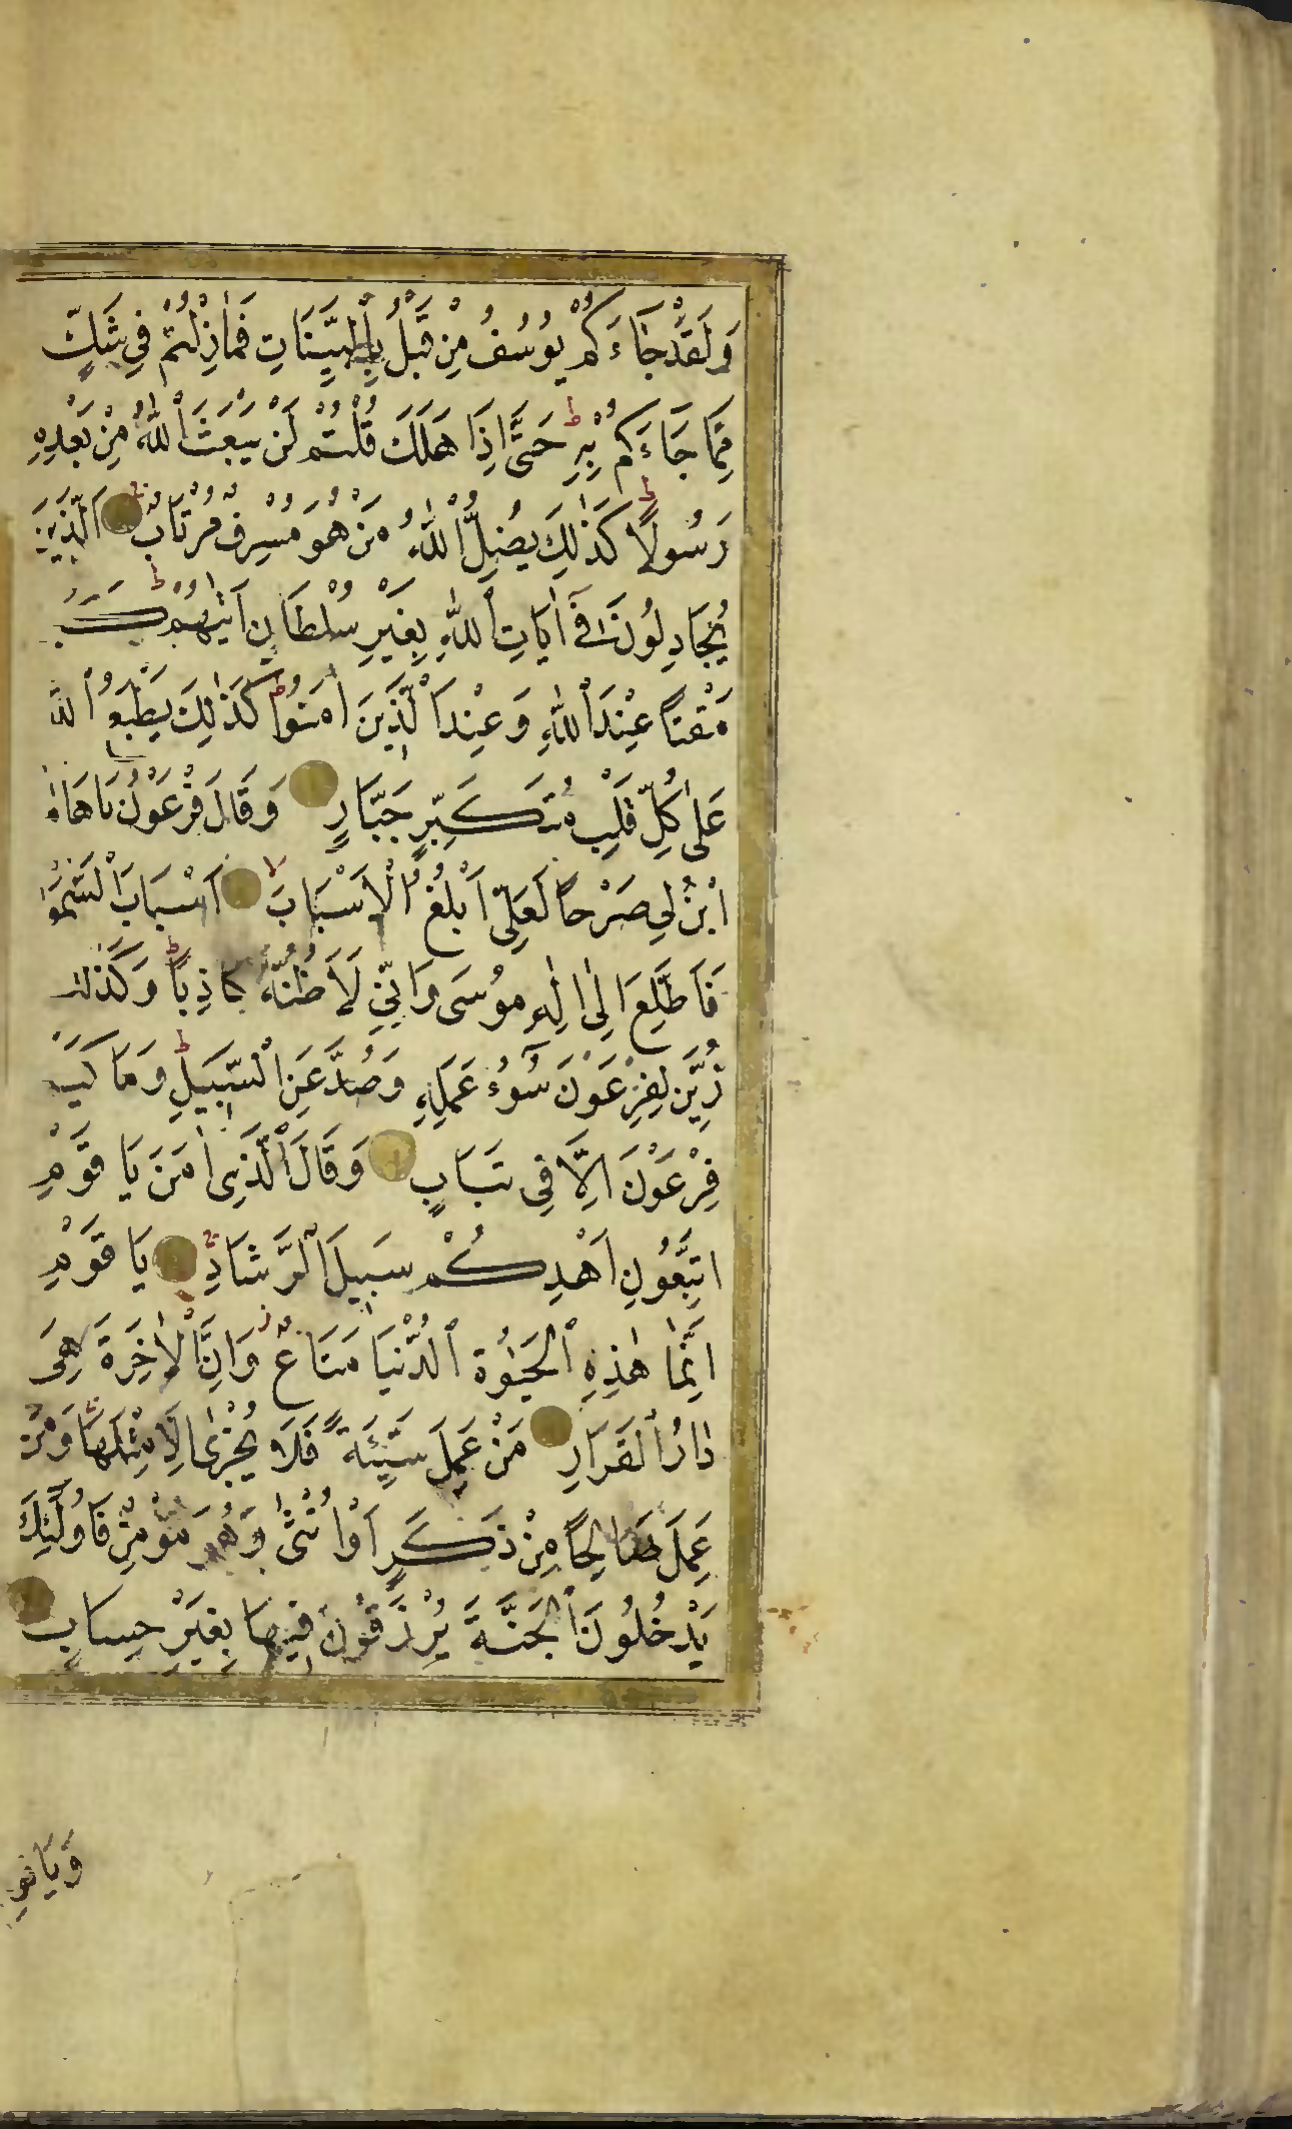 وَلَقَدْ جَاءَكُمْ يُوسُفُ مِنْ قَبْلُ بِالْبَيِّنَاتِ فَمَازِلْتُمْ فِي شَكٍّ
مِمَّا جَاءَكُمْ بِهِ ط حَتَّى اِذَا هَلَكَ قُلْتُمْ لَنْ يَبْعَثَ اللّٰهُ مِنْ بَعْدِهِ
رَسُولًا ط كَذٰلِكَ يُضِلُّ اللّٰهُ مَنْ هُوَ مُسْرِفٌ مُرْتَابٌ اَلَّذِينَ
يُجَادِلُونَ فِى اٰيَاتِ اللّٰهِ بِغَيْرِ سُلْطَانٍ اَتٰيهُمْ ط كَبُرَ
مَقْتًا عِنْدَ اللّٰهِ وَعِنْدَ الَّذِينَ اٰمَنُوا ط كَذٰلِكَ يَطْبَعُ اللّٰهُ
عَلٰى كُلِّ قَلْبِ مُتَكَبِّرٍ جَبَّارٍ وَقَالَ فِرْعَوْنُ يَا هَامَانُ
ابْنِ لِى صَرْحًا لَعَلِّى اَبْلُغُ الْاَسْبَابَ لا اَسْبَابَ السَّمٰوَاتِ
فَاَطَّلِعَ اِلٰى اِلٰهِ مُوسَى وَاِنِّى لَاَظُنُّهُ كَاذِبًا ط وَكَذٰلِكَ
زُيِّنَ لِفِرْعَوْنَ سُوٓءُ عَمَلِهِ وَصُدَّ عَنِ السَّبِيلِ ط وَمَا كَيْدُ
فِرْعَوْنَ اِلَّا فِى تَبَابٍ وَقَالَ الَّذِى اٰمَنَ يَا قَوْمِ
اتَّبِعُونِ اَهْدِكُمْ سَبِيلَ الرَّشَادِ يَا قَوْمِ
اِنَّمَا هٰذِهِ الْحَيٰوةُ الدُّنْيَا مَتَاعٌ ز وَاِنَّ الْاٰخِرَةَ هِىَ
دَارُ الْقَرَارِ مَنْ عَمِلَ سَيِّئَةً فَلَا يُجْزٰى اِلَّا مِثْلَهَا وَمَنْ
عَمِلَ صَالِحًا مِنْ ذَكَرٍ اَوْ اُنْثٰى وَهُوَ مُؤْمِنٌ فَاُولٰئِكَ
يَدْخُلُونَ الْجَنَّةَ يُرْزَقُونَ فِيهَا بِغَيْرِ حِسَابٍ
وَيَا قَوْمِ